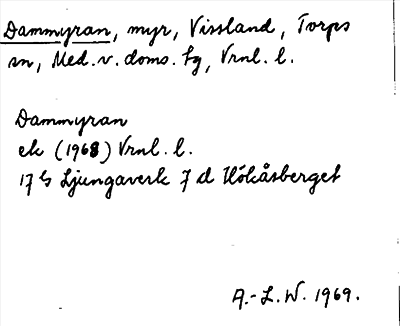 Dammyran, myr, Vissland, Torps
sn, Med. v. doms. fg, Vrnl. l.
Dammyran
ek (1968) Vrnl. l.
17 G Ljungaverk 7 d Hökåsberget
A.-L. W. 1969.